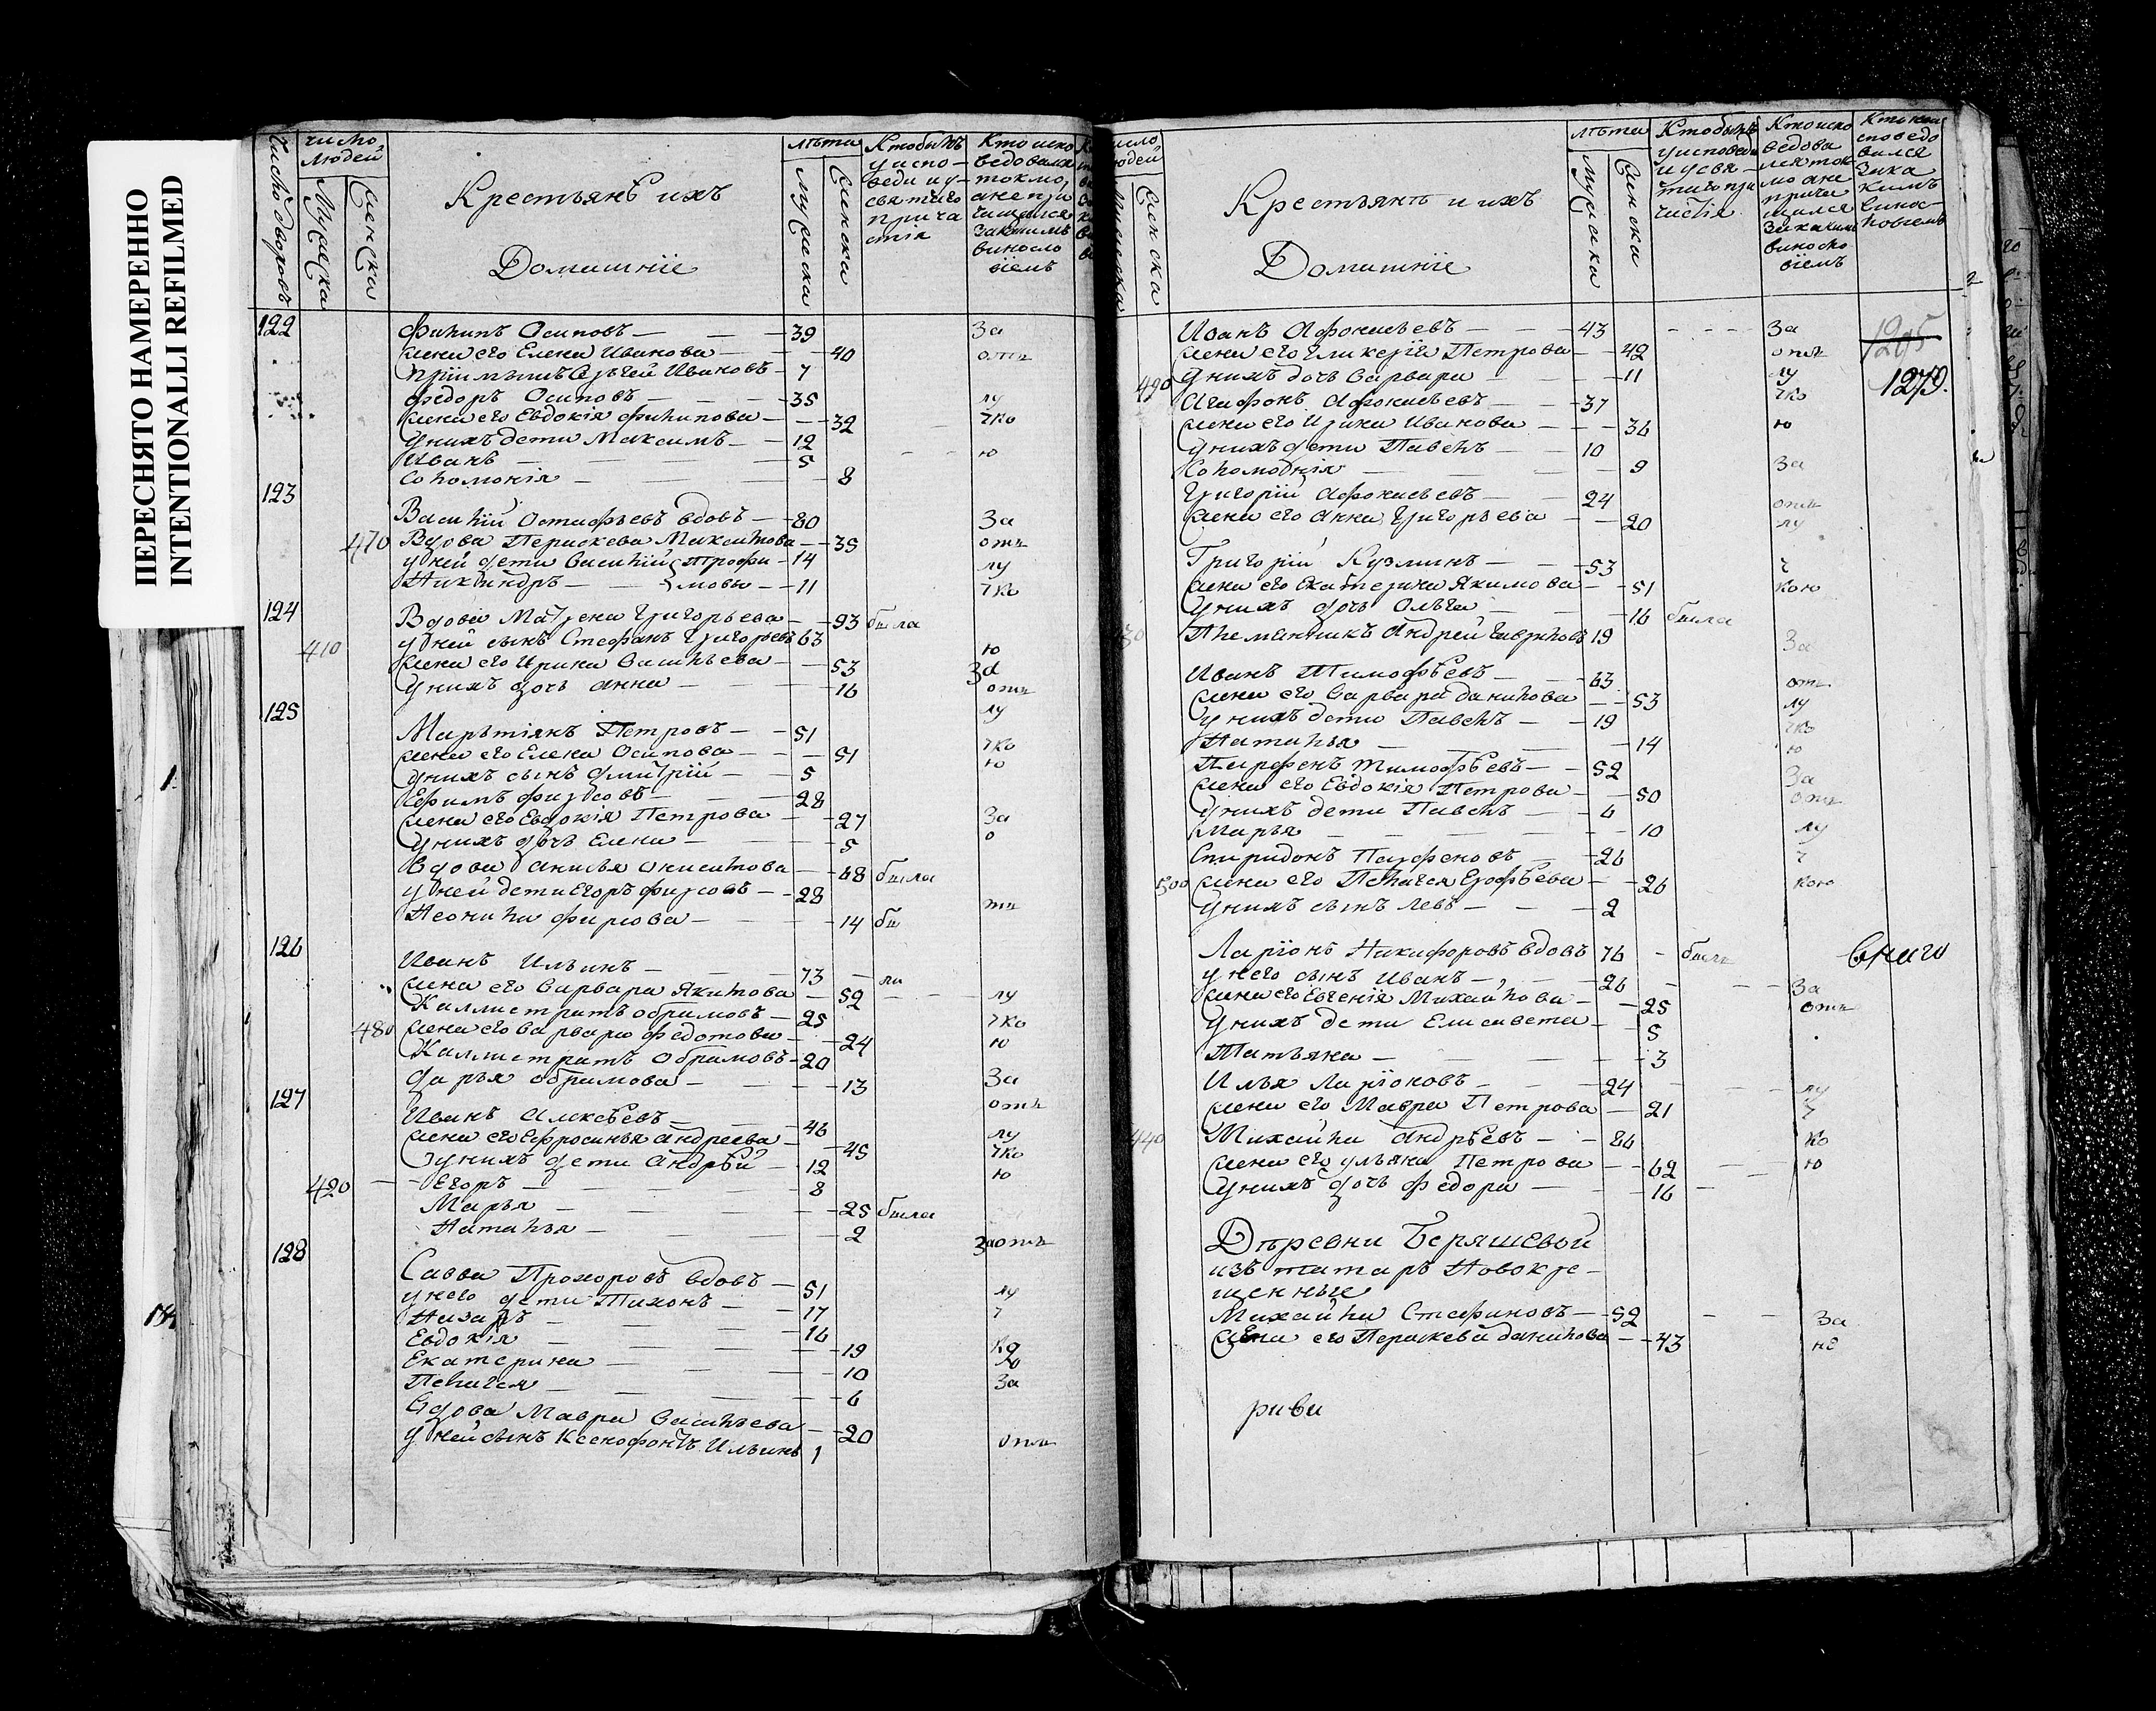 ПЕРЕСНЯТО НАМЕРЕННО
INTENTIONALLI REFILMED
Число дворовъ
число людей
Мужеска
Женска
Крестьянѣ ихъ
Домашніе
лѣта
Мужеска
Женска
Кто былъ у исповеди и у святаго причастія
Кто исповедовался токмо, а не причащался за какимъ винословіемъ
122 Филипъ Осиповъ 39 За
жена его Елена Иванова 40 отл
пріимышъ Сергей Ивановъ 7
Федоръ Осиповъ 35 лу
жена его Евдокія Филипова 32 чко
у нихъ дети Максимъ 12
Иванъ 5 ю
Соломонія 8
123
Василій Остафьевъ вдовъ 80 За
470 Вдова Параскева Максимова 35 отл
у ней дети Василій Трофи 14 лу
Никандръ мовы 11 чко
124 Вдова Матрена Григорьева 93 была
410 у ней сынъ Стефанъ Григорьевъ 63 ю
жена его Ирина Васильева 53 За
у нихъ дочь Анна 16 отл
125 лу
Мартіянъ Петровъ 51
жена его Елена Осипова 51 чко
у нихъ сынъ Дмитрій 5 ю
Ефимъ Фирсовъ 28
жена его Евдокія Петрова 27 За
у нихъ дочь Елена 5 о
Вдова Анисья 68 была
у ней дети Егоръ Фирсовъ 28
Леонила Фирсова 14 бы
126
Иванъ Ильинъ 73 ла
жена его Варвара Якимова 52 лу
Каллистратъ Обрамовъ 25 чко
480 жена его Варвара Федотова 24 ю
Каллистратъ Обрамовъ 20
Дарья Обрамова 13 За
127 отл
Иванъ Алексѣевъ 46 лу
жена его Ефросинья Андреева 45 чко
у нихъ дети Андрѣй 12 ю
420 Егоръ 8
Марья 25 была
Наталья 2 Заотл
128
Савва Прохоровъ вдовъ 51
у него дети Тихонъ 17 лу
Назаръ 16 ч
Евдокія 19 ко
Екатерина 10 ю
Пелагея 6 За
Вдова Мавра Васильева 20
у ней сынъ Ксенофонтъ Ильинъ 1 отл
число людей
Мужеска
Женска
Крестьянѣ и ихъ
Домашніе
лѣта
Мужеска
Женска
Кто былъ у исповеди и у святаго причастія
Кто исповедовался токмо а не причащался за какимъ винословіемъ
Кто не исповедовался за какимъ винословіемъ
Иванъ Афонасьевъ 43 За 1205
жена его Гликерія Петрова 42 отл
490 у нихъ дочь Варвара 11 лу 1270.
Агафонъ Афонасьевъ 37 чко
жена его Ирина Иванова 36 ю
у нихъ дети Павелъ 10
Соломонія 9 За
Григорій Афонасьевъ 24
жена его Анна Григорьева 20 отл
лу
Григорій Кузминъ 53 ч
жена его Екатерина Якимова 51 кою
у нихъ дочь Ольга 16 была
430 племянникъ Андрей Гавриловъ 19
За
Иванъ Тимофѣевъ 63
жена его Варвара Данилова 53 отл
у нихъ дети Павелъ 19 лу
Наталья 14 чко
Парфенъ Тимофѣевъ 52 ю
жена его Евдокія Петрова 50 За
у нихъ дети Павелъ 6 отл
Марья 10 лу
Спиридонъ Парфеновъ 26 ч
500 жена его Пелагея Ерофѣева 26 кою
у нихъ сынъ Левъ 2
Ларіонъ Никифоровъ вдовъ 76 былъ
у него сынъ Иванъ 26 За
жена его Евгенія Михайлова 25 отл
у нихъ дети Елисавета 5
Татьяна 3
Илья Ларіоновъ 24 лу
жена его Мавра Петрова 21 ч
440 Михайла Андрѣевъ 86 ко
жена его Ульяна Петрова 62 ю
у нихъ дочь Федора 16
Дѣревни Беряшевой
изъ татаръ Новокре-
щенные
Михайла Стафановъ 52 За
жена его Параскева Данилова 43 не